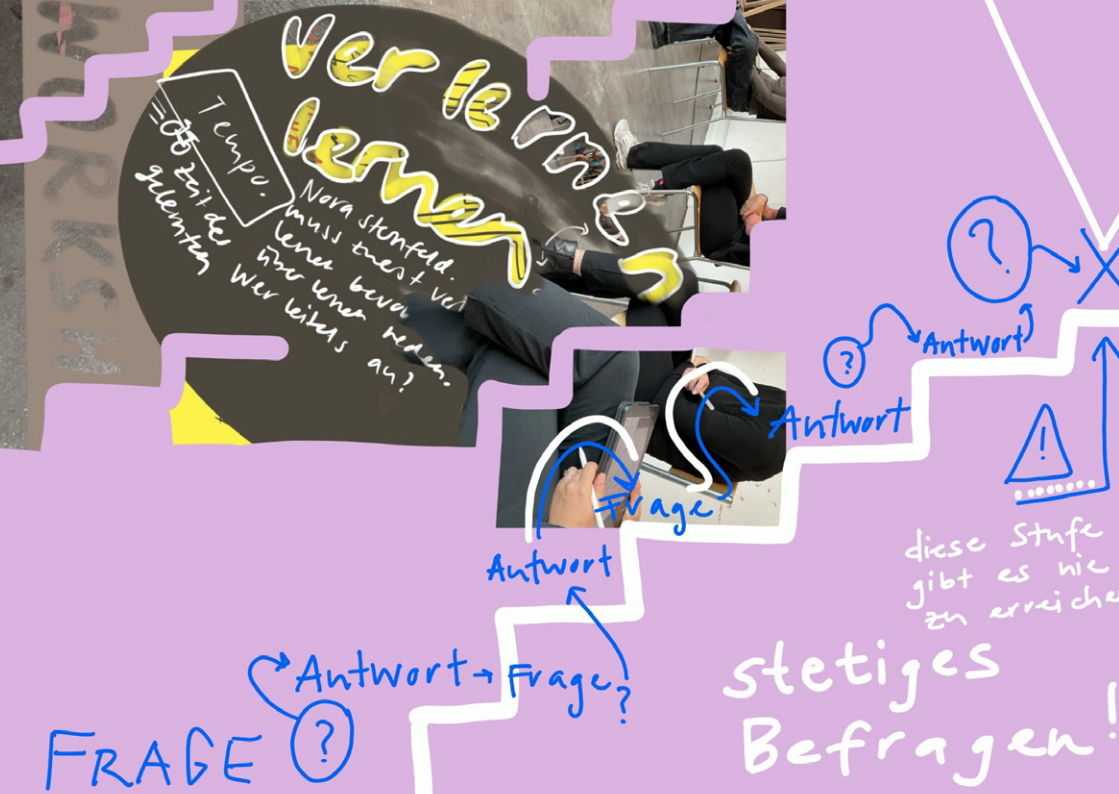 WORKSH
Verlernen
lernen
Tempo.
zeit des
gelernten
Nora Sternfeld.
muss zuerst ver
lernen bevor
über lernen reden.
Wer leitets an?
?
Antwort
?
Antwort
!
Frage
Antwort
diese Stufe
gibt es nie
zu erreiche
Antwort → Frage?
stetiges
Befragen!
FRAGE ?